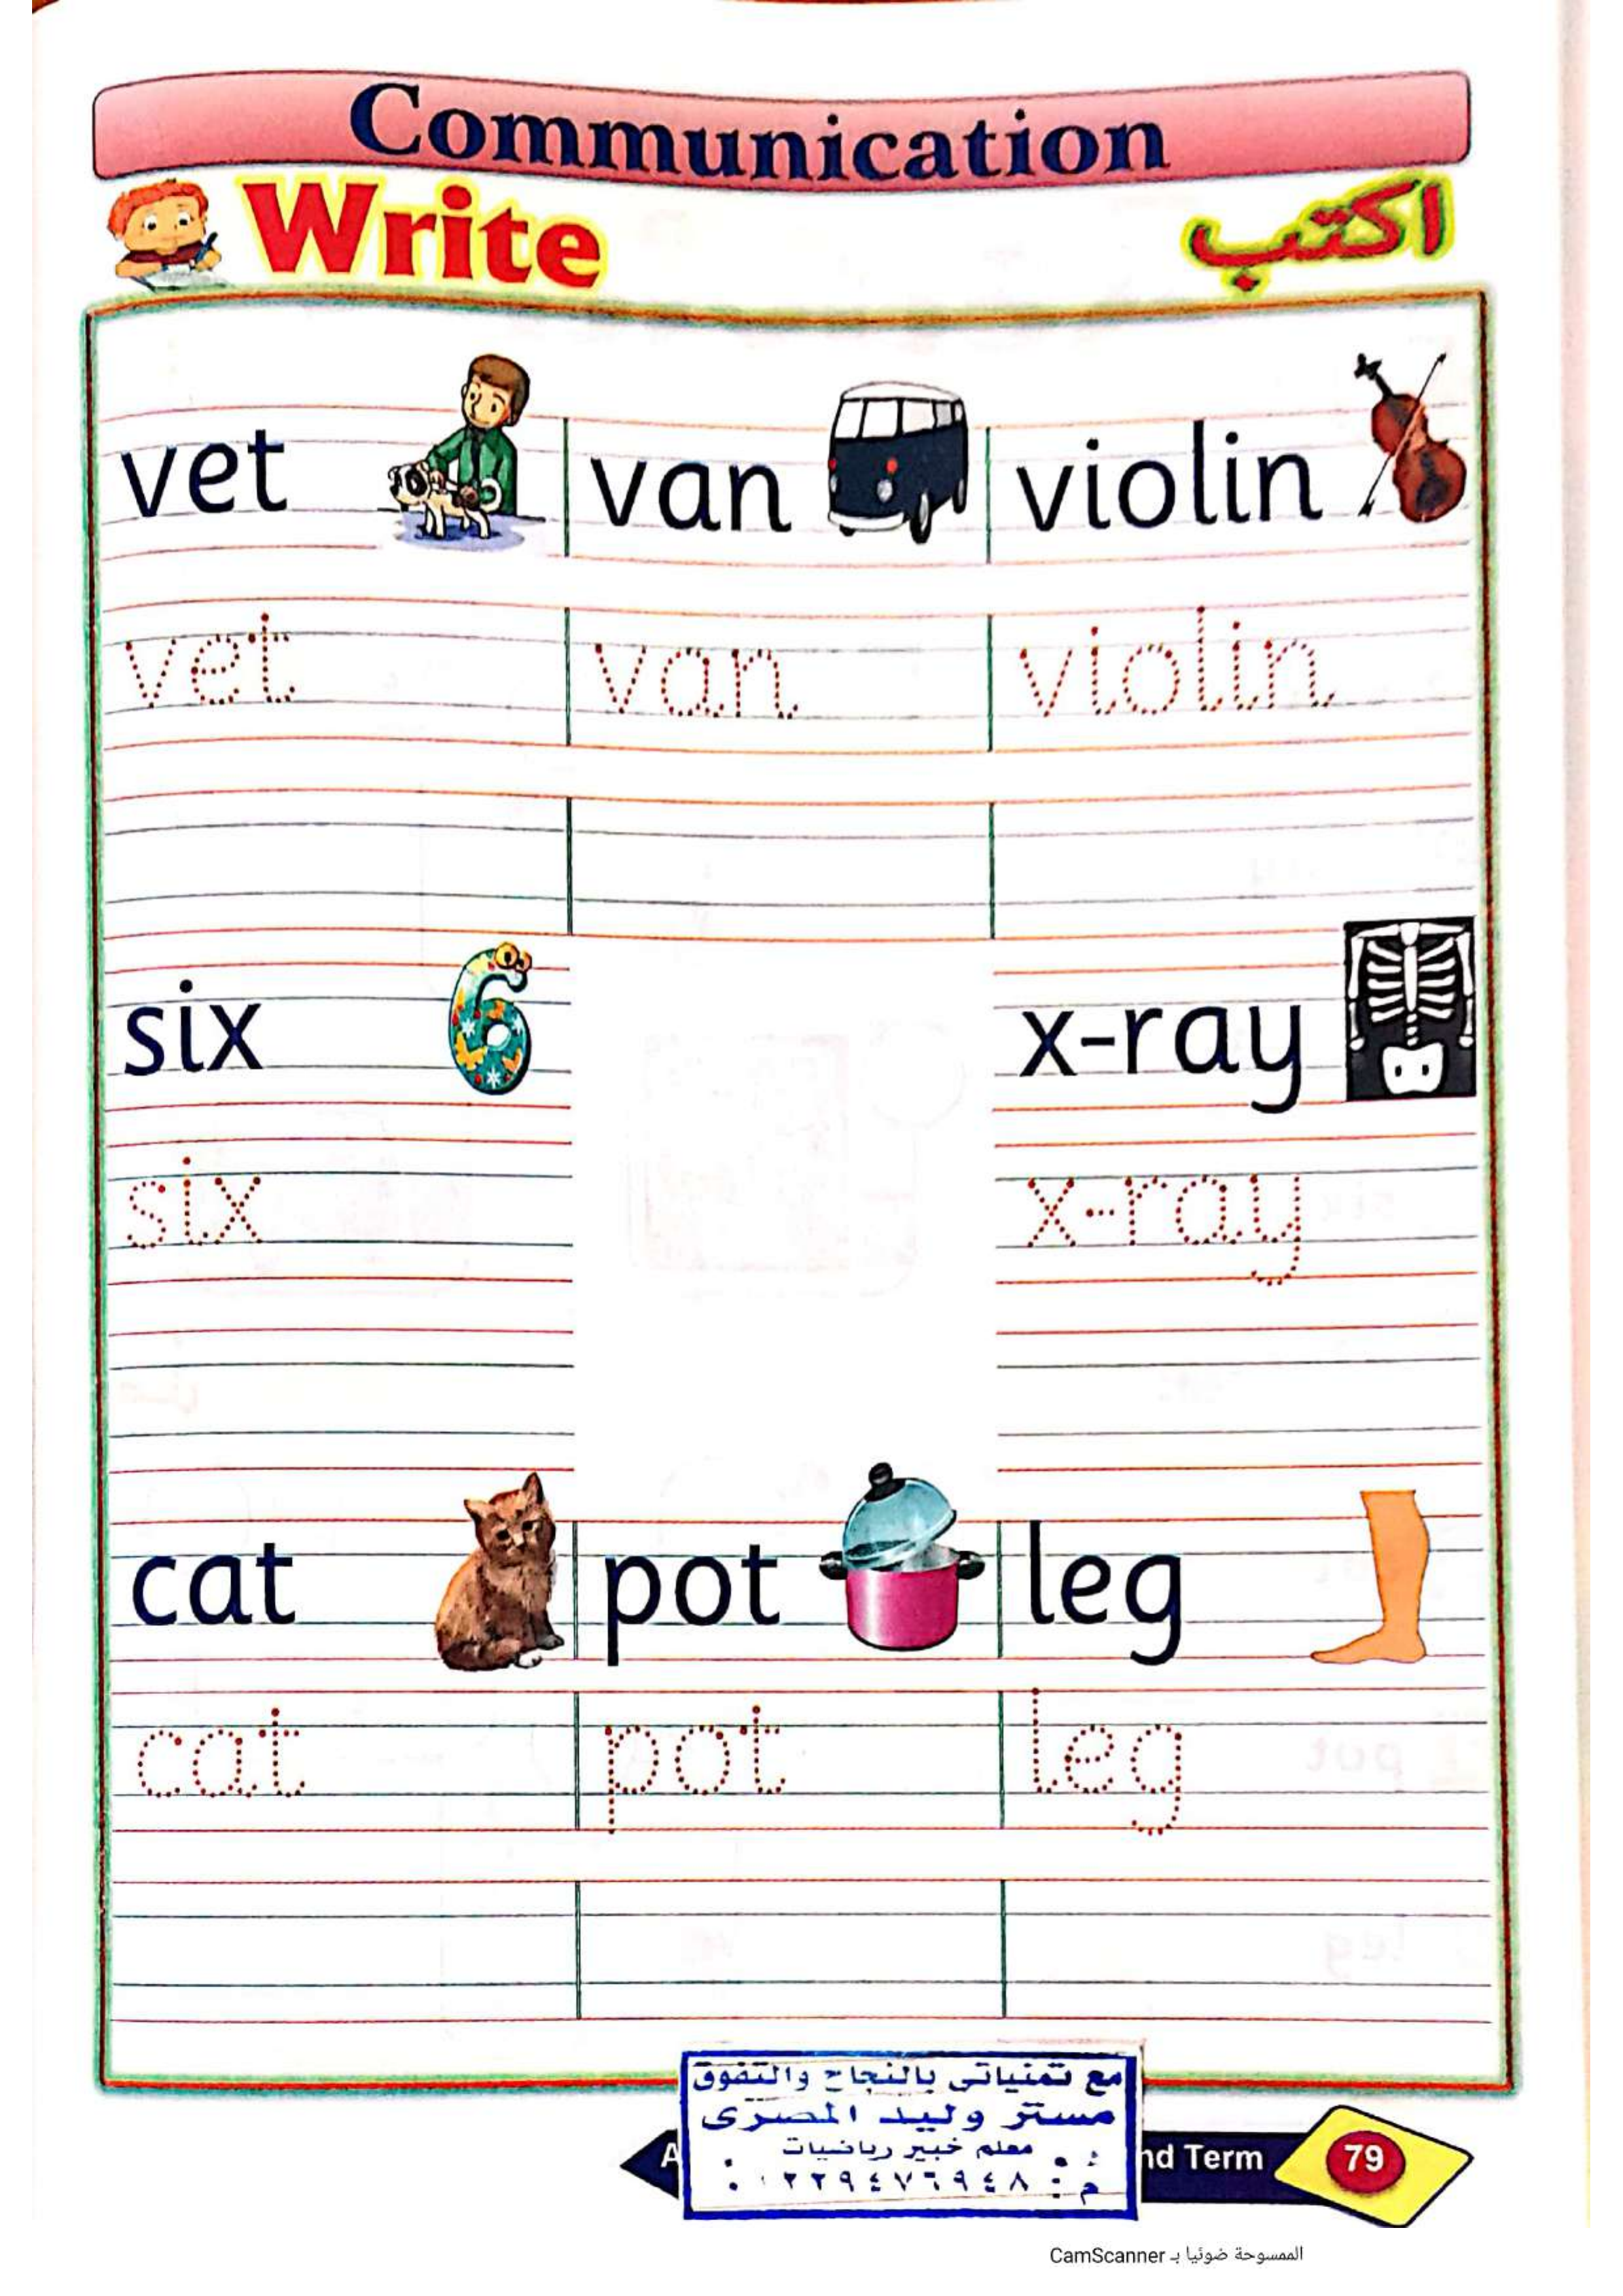 Communication
Write اكتب
vet van violin
vet van violin
six x-ray
six x-ray
cat pot leg
cat pot leg
مع تمنياتى بالنجاح والتفوق
مستر وليد المصرى
معلم خبير رياضيات
م: ٠١٢٢٩٤٧٦٩٤٨
nd Term
79
الممسوحة ضوئيا بـ CamScanner